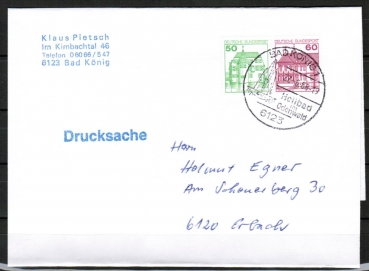 Klaus Pietsch
Im Kimbachtal 46
Telefon 06066/547
6123 Bad König
DEUTSCHE BUNDESPOST
50
DEUTSCHE BUNDESPOST
60
BAD KÖNIG
Heilbad
im
Odenwald
6123
Drucksache
Herrn
Helmut Egner
Am Schauerberg 30
6120 Erbach